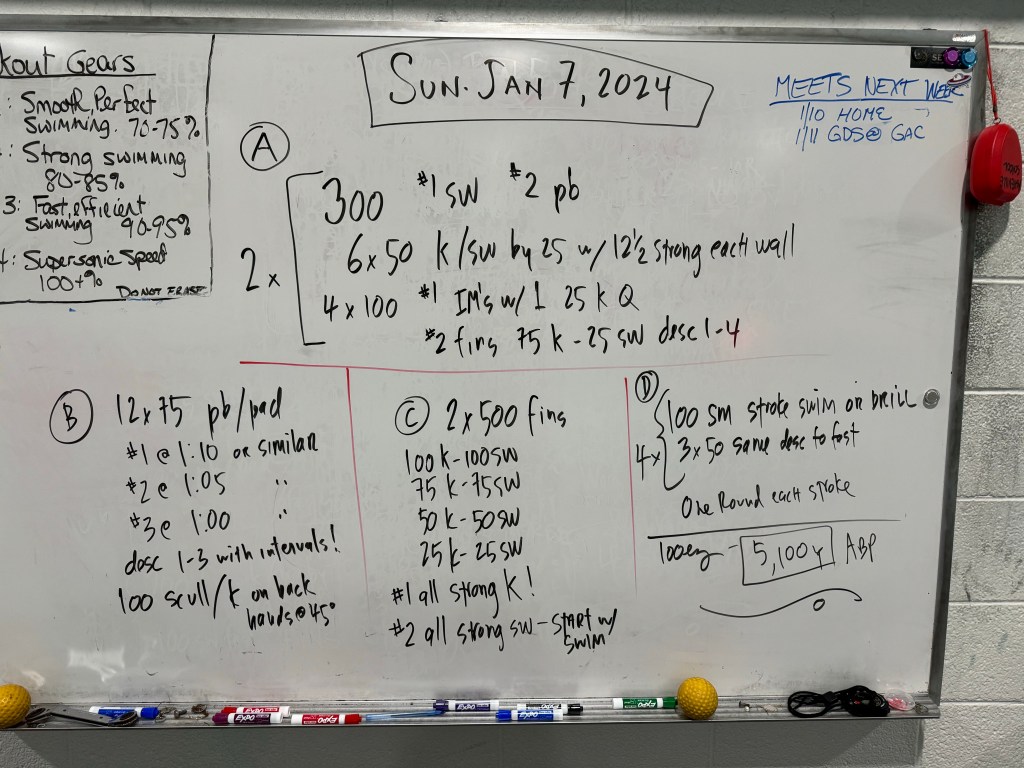 kout Gears
: Smooth, Perfect
Swimming. 70-75%
: Strong swimming
80-85%
3: Fast, efficient
Swimming 90-95%
4: Supersonic Speed
100+%
DO NOT ERASE
SUN. JAN 7, 2024
MEETS NEXT WEEK
1/10 HOME
1/11 GDS@ GAC
A
2x
300 #1 sw #2 pb
6x50 k/sw by 25 w/ 12½ strong each wall
4x100 #1 IM's w/ 1 25 k Q
#2 fins 75 k - 25 sw desc 1-4
B
12x75 pb/pad
#1 @ 1:10 or similar
#2 @ 1:05 "
#3 @ 1:00 "
desc 1-3 with intervals!
100 scull/k on back
hands @ 45°
C
2x500 fins
100 k-100 sw
75 k-75 sw
50 k-50 sw
25 k-25 sw
#1 all strong k!
#2 all strong sw - START w/
SWIM
D
4x
100 sm stroke swim or DRILL
3x50 same desc to fast
One Round each stroke
100 ez - 5,100y ABP
EXPO
EXPO
EXPO
EXPO
EXPO
EXPO